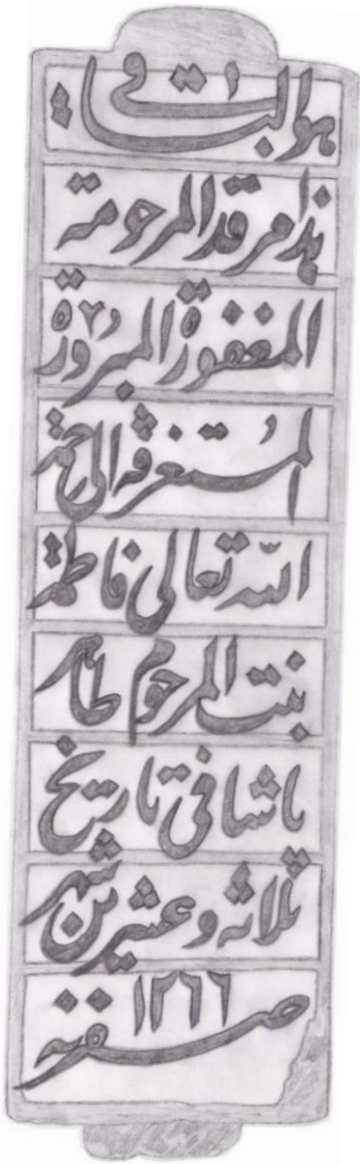 هوالباقي
هذا مرقد المرحومة
المغفورة المبرورة
المستغرقه الى رحمة
الله تعالى فاطمة
بنت المرحوم طاهر
باشا في تاريخ
ثلاثه وعشرين شهر
صفر سنه ١٢٦٦